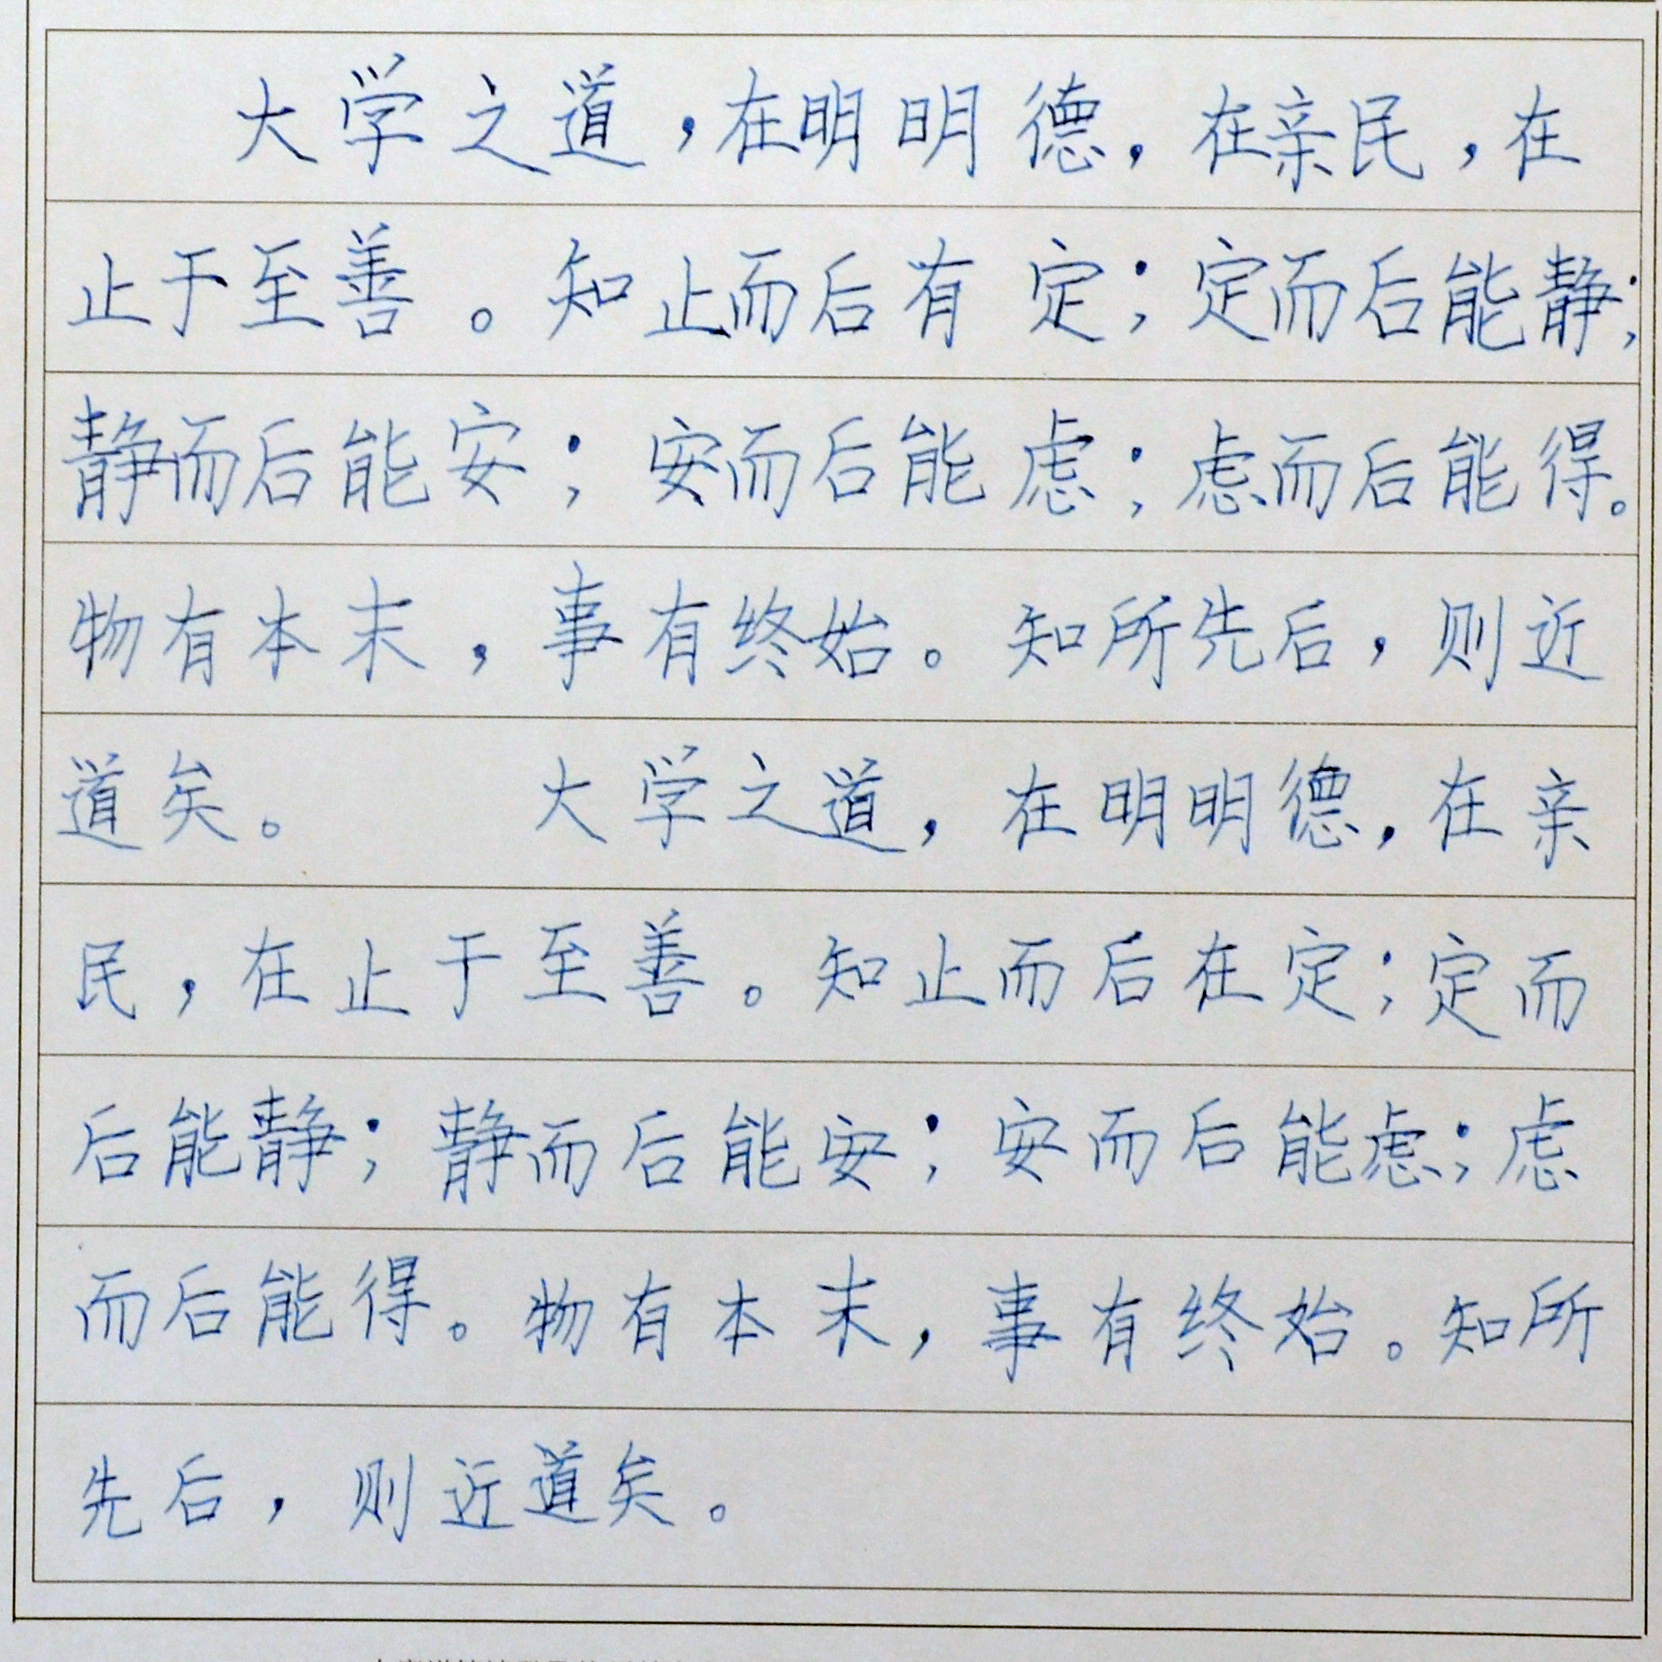 大学之道，在明明德，在亲民，在
止于至善。知止而后有定；定而后能静；
静而后能安；安而后能虑；虑而后能得。
物有本末，事有终始。知所先后，则近
道矣。 大学之道，在明明德，在亲
民，在止于至善。知止而后在定；定而
后能静；静而后能安；安而后能虑；虑
而后能得。物有本末，事有终始。知所
先后，则近道矣。